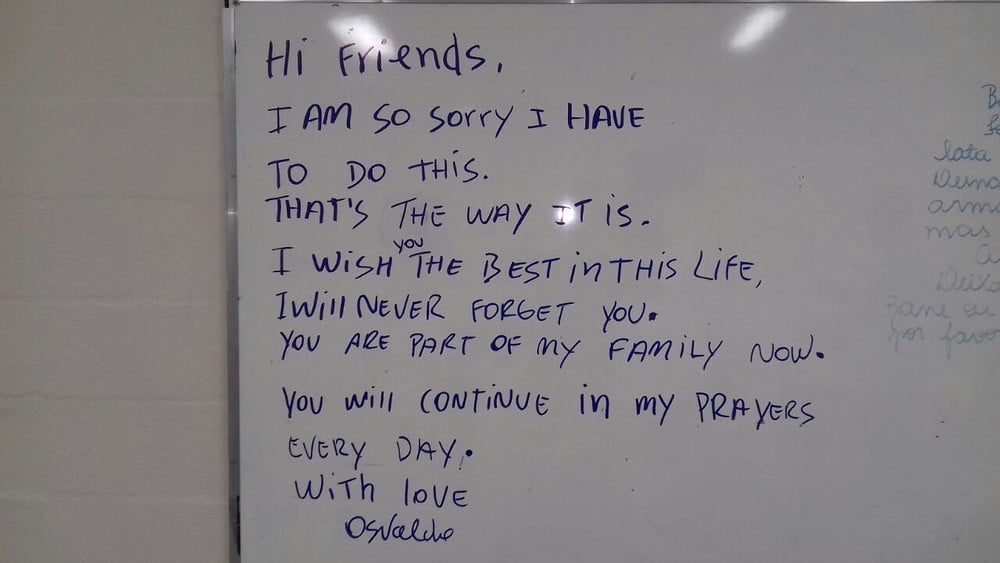 Hi Friends,
I AM SO SORRY I HAVE
TO DO THIS.
THAT'S THE WAY IT IS.
you
I WISH THE BEST in THIS LIFE,
I Will NEVER FORGET YOU.
YOU ARE PART OF MY FAMILY NOW.
YOU will CONTINUE in my PRAYERS
EVERY DAY.
With lOVE
Osvaldo
lata
mas
por